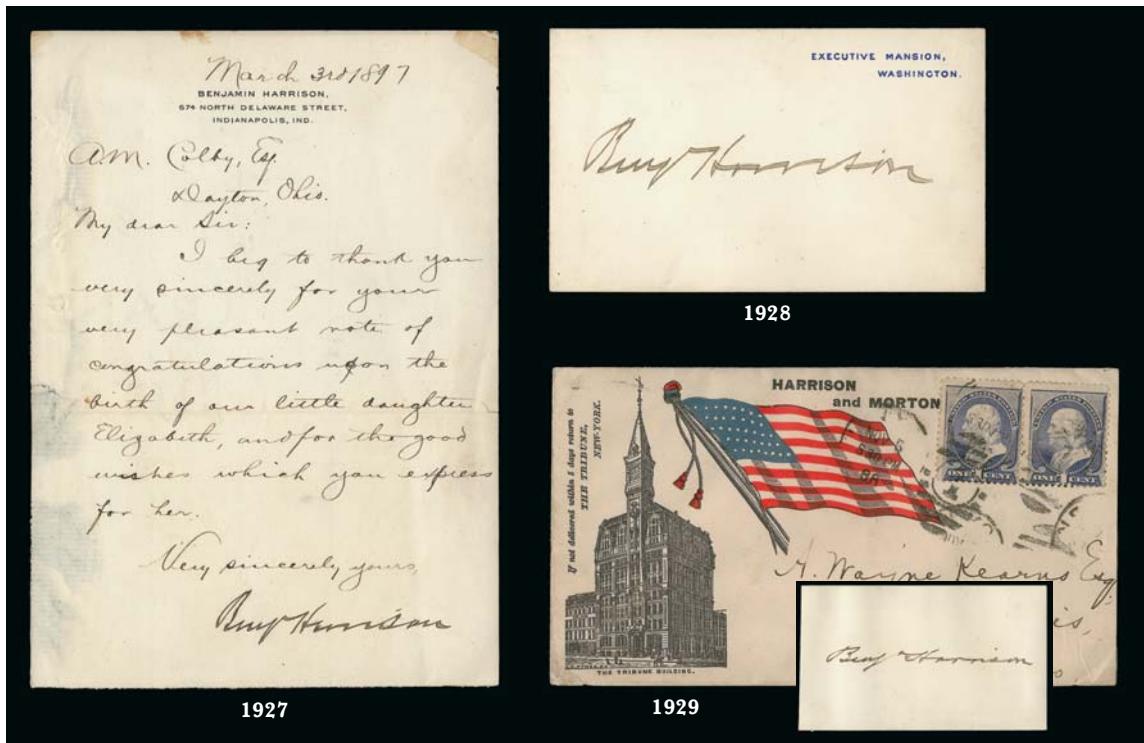 March 3rd 1897
BENJAMIN HARRISON,
674 NORTH DELAWARE STREET,
INDIANAPOLIS, IND.
A.M. Colby, Esq.
Dayton, Ohio.
My dear Sir:
I beg to thank you
very sincerely for your
very pleasant note of
congratulations upon the
birth of our little daughter
Elizabeth, and for the good
wishes which you express
for her.
Very sincerely yours,
Benj Harrison
1927
EXECUTIVE MANSION,
WASHINGTON.
Benj Harrison
1928
If not delivered within 5 days return to
THE TRIBUNE,
NEW-YORK.
HARRISON
and MORTON
ONE CENT
ONE CENT
A. Wayne Kearns Esq.
THE TRIBUNE BUILDING.
Benj Harrison
1929